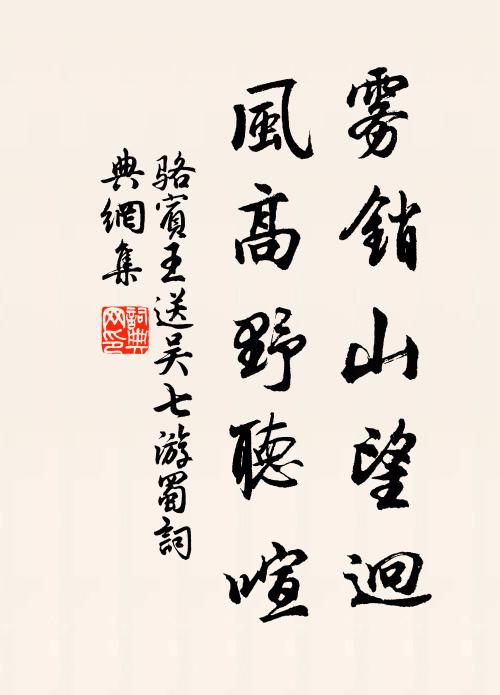 霧銷山望迥
風高野聽喧
駱賓王送吳七游蜀詞
典網集
詞典
网印